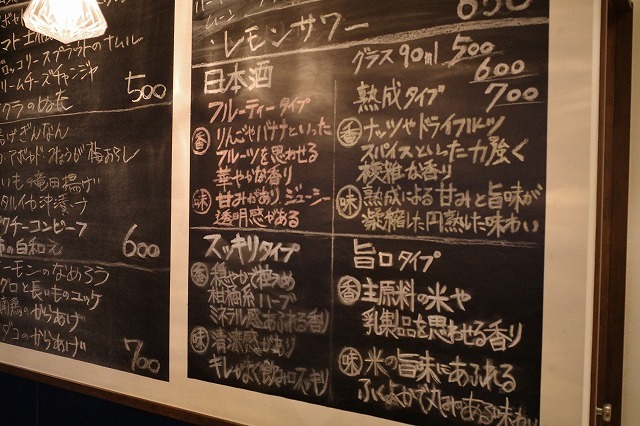 トマト
ブロッコリースプラウトのナムル
クリームチーズチャンジャ
500
ぎんなん
竜田揚げ
沖漬け
パクチーコンビーフ
の白和え
600
サーモンのなめろう
マグロと長いものユッケ
からあげ
タコのからあげ
700
650
・レモンサワー
日本酒
グラス90ml 500
600
700
フルーティータイプ
香 りんごやバナナといった
フルーツを思わせる
華やかな香り
味 甘みがあり、ジューシー
透明感がある
熟成タイプ
香 ナッツやドライフルーツ
スパイスといった力強く
複雑な香り
味 熟成による甘みと旨味が
凝縮した円熟した味わい
スッキリタイプ
香 穏やかで控えめ
柑橘系ハーブ
ミネラル感あふれる香り
味 清涼感があり
キレがよく飲み口スッキリ
旨口タイプ
香 主原料の米や
乳製品を思わせる香り
味 米の旨味にあふれる
ふくよかで丸みのある味わい